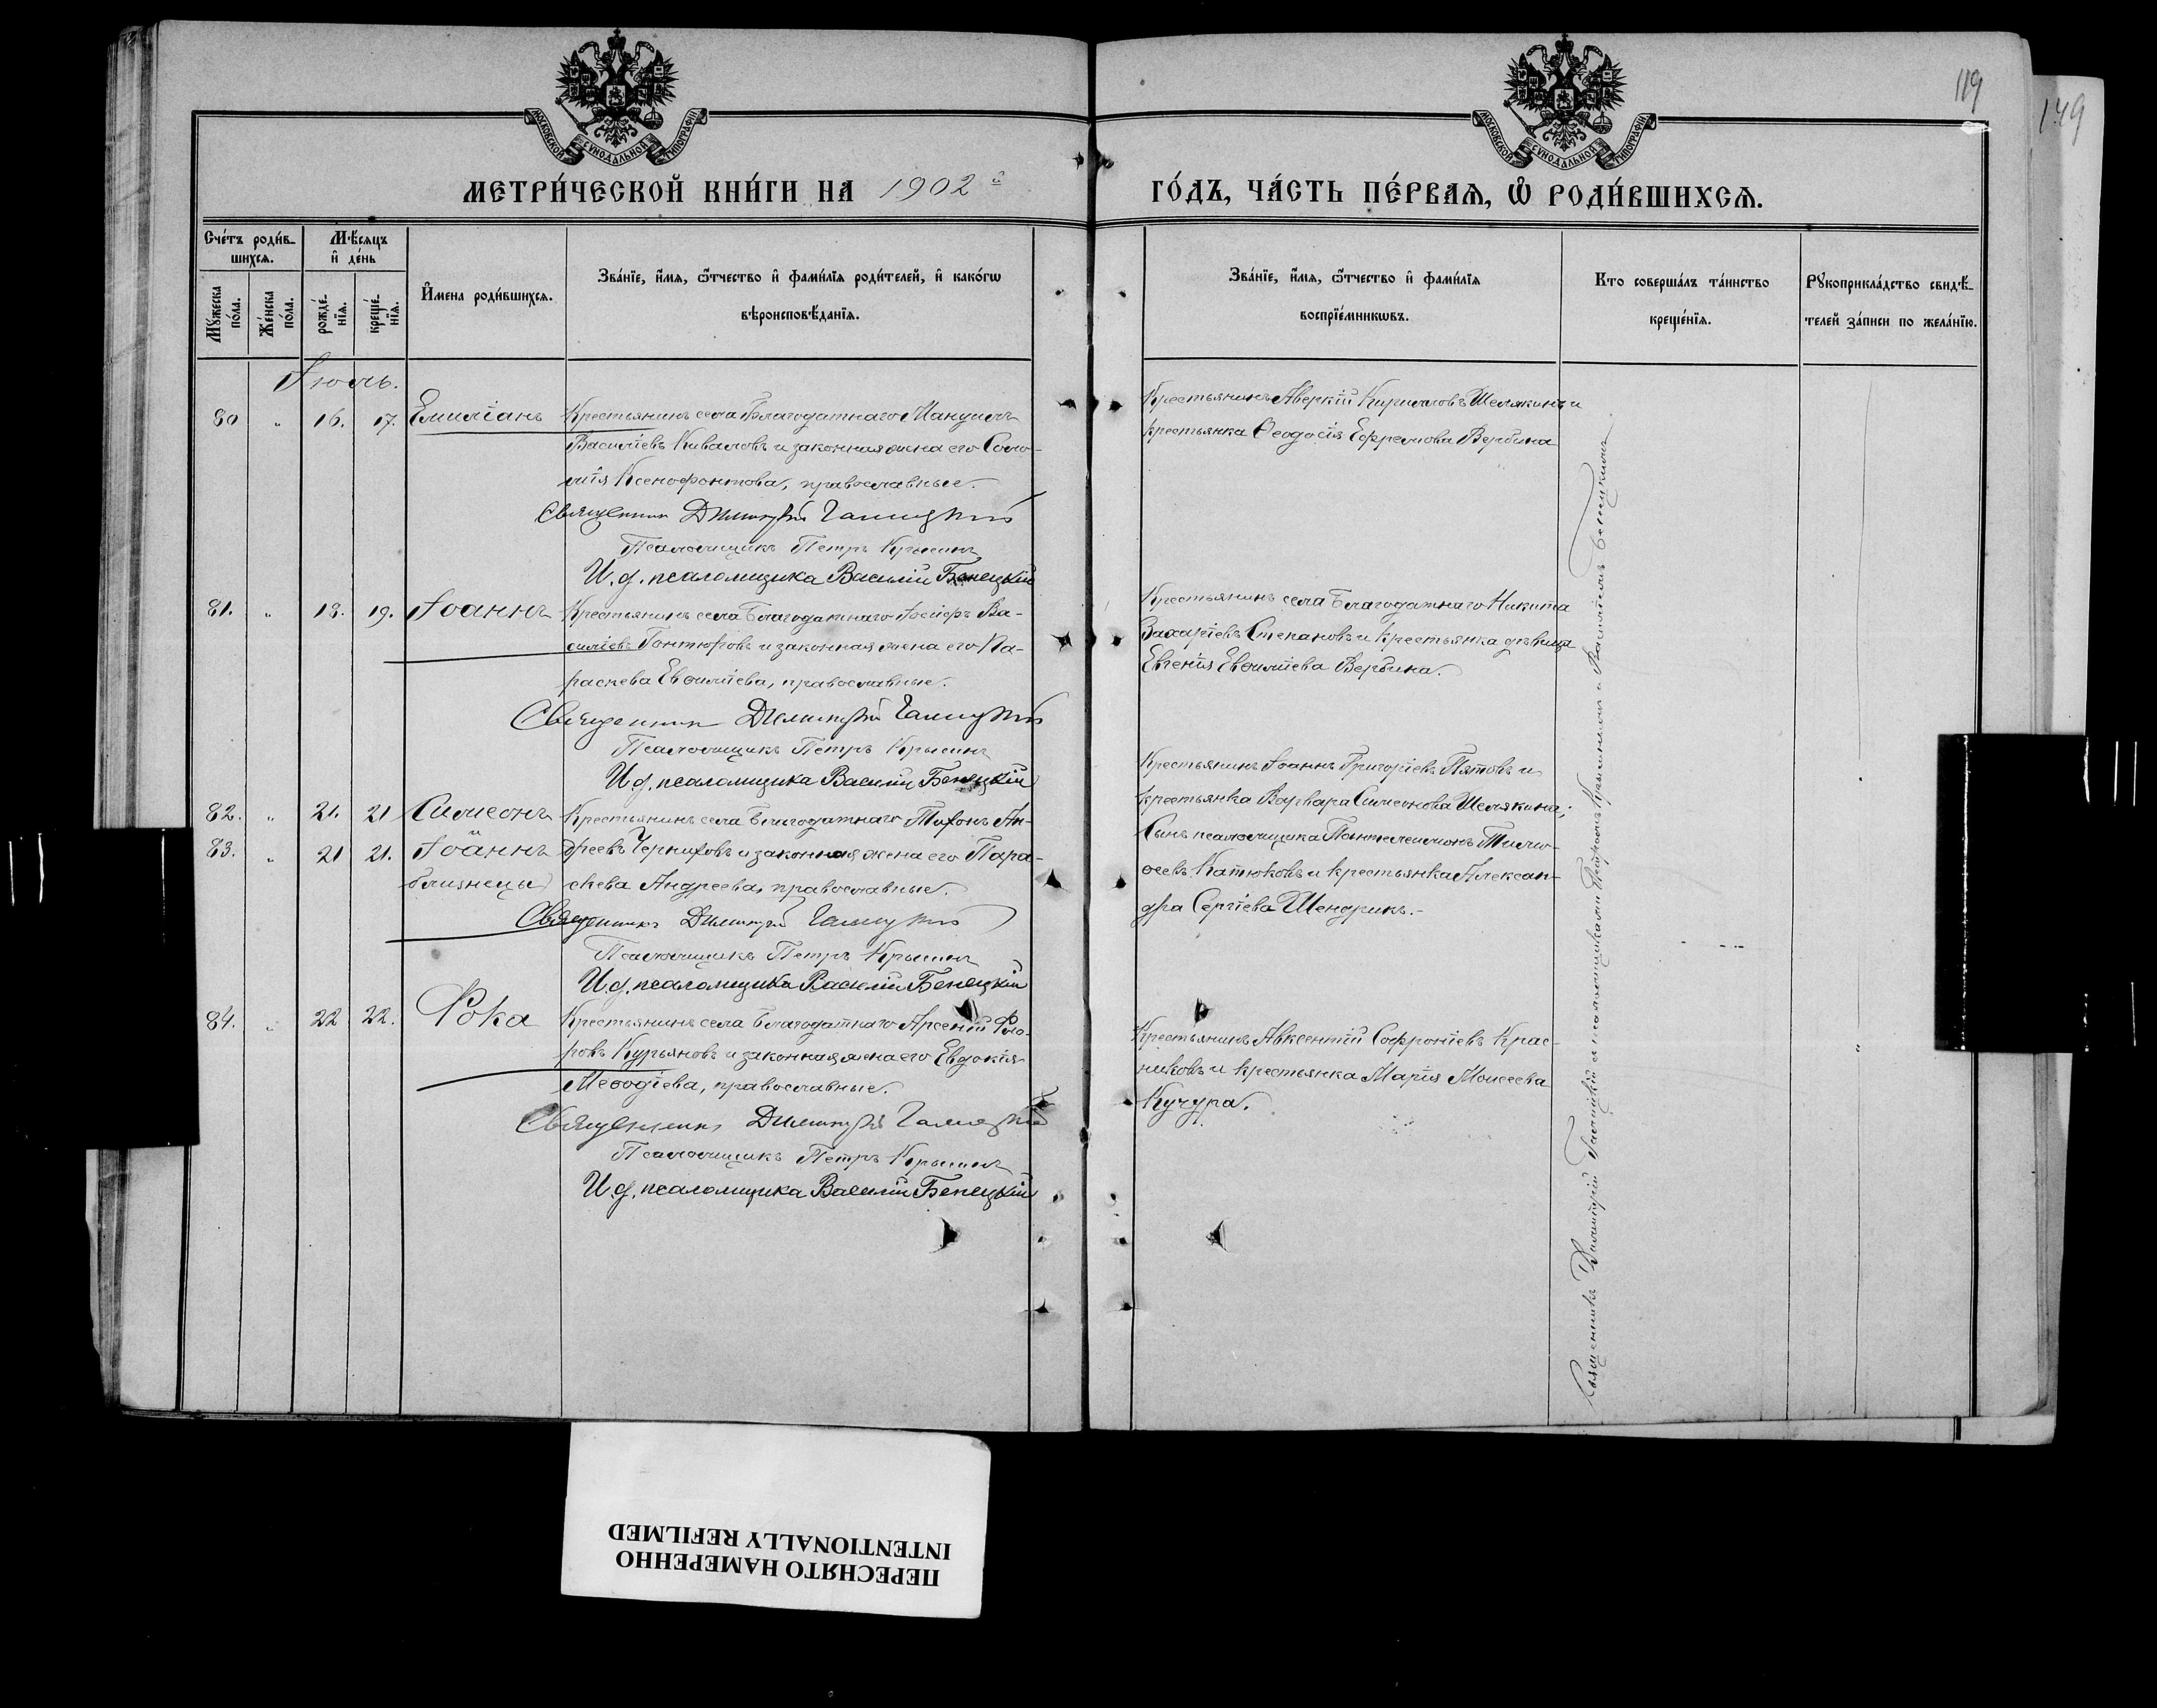 119
149
МОСКОВСКОЙ СѴНОДАЛЬНОЙ ТИПОГРАФІИ
МОСКОВСКОЙ СѴНОДАЛЬНОЙ ТИПОГРАФІИ
МЕТРИ́ЧЕСКОЙ КНИ́ГИ НА 1902й
ГО́ДЪ, ЧА́СТЬ ПЕ́РВАѦ, Ѽ РОДИ́ВШИХСѦ.
Сче́тъ роди́в-
шихсѧ.
Мѣ́сѧцъ
и҆ де́нь
Мꙋ́жеска
по́ла.
Же́нска
по́ла.
рожде́-
нїѧ.
креще́-
нїѧ.
И҆мена роди́вшихсѧ.
Зва́нїе, и҆́мѧ, ѻ҆́тчество и҆ фами́лїѧ роди́телей, и҆ како́гѡ
вѣроисповѣ́данїѧ.
Зва́нїе, и҆́мѧ, ѻ҆́тчество и҆ фами́лїѧ
воспрїе́мникѡвъ.
Кто соверша́лъ та́инство
креще́нїѧ.
Рꙋкоприкла́дство свидѣ́-
телей за́писи по жела́нїю.
Іюль.
80 " 16. 17. Емиліанъ Крестьянинъ села Благодатнаго Мануилъ
Василіевъ Киваловъ и законная жена его Соло-
мія Ксенофонтова, православные.
Священник Димитрій Галицкій
Псаломщикъ Петръ Крысинъ
И.д. псаломщика Василій Бенецкій
Крестьянинъ Аверкій Кирилловъ Шелякинъ и
крестьянка Ѳеодосія Ефремова Вербина
81. " 18. 19. Іоаннъ Крестьянинъ села Благодатнаго Іосифъ Ва-
силіевъ Гонтюровъ и законная жена его Па-
раскева Евѳиміева, православные.
Священник Димитрій Галицкій
Псаломщикъ Петръ Крысинъ
И.д. псаломщика Василій Бенецкій
Крестьянинъ села Благодатнаго Никита
Захаріевъ Степановъ и крестьянка дѣвица
Евгенія Евѳиміева Вербина.
82. " 21. 21 Симеонъ Крестьянинъ села Благодатнаго Тихонъ Ан-
83. " 21 21. Іоаннъ дреевъ Черниковъ и законная жена его Пара-
близнецы скева Андреева, православные.
Священникъ Димитрій Галицкій
Псаломщикъ Петръ Крысинъ
И.д. псаломщика Василій Бенецкій
Крестьянинъ Іоаннъ Григоріевъ Пятовъ и
крестьянка Варвара Симеонова Шелякина;
Сынъ псаломщика Пантелеимонъ Тимо-
ѳеевъ Катюковъ и крестьянка Алексан-
дра Сергіева Шендрикъ.
84. " 22 22. Фока Крестьянинъ села Благодатнаго Арсеній Фло-
ровъ Курьяновъ и законная жена его Евдокія
Меѳодіева, православные.
Священникъ Димитрій Галицкій
Псаломщикъ Петръ Крысинъ
И.д. псаломщика Василій Бенецкій
Крестьянинъ Авксентій Софроніевъ Крас-
никовъ и крестьянка Марія Моисеева
Кучура.
Священникъ Димитрій Галицкій съ псаломщиками Петромъ Крысинымъ и Василіемъ Бенецкимъ
ПЕРЕСНЯТО НАМЕРЕННО
INTENTIONALLY REFILMED